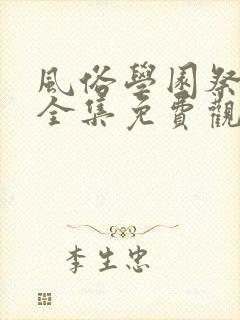 風俗學園祭
全集免費觀
李生忠